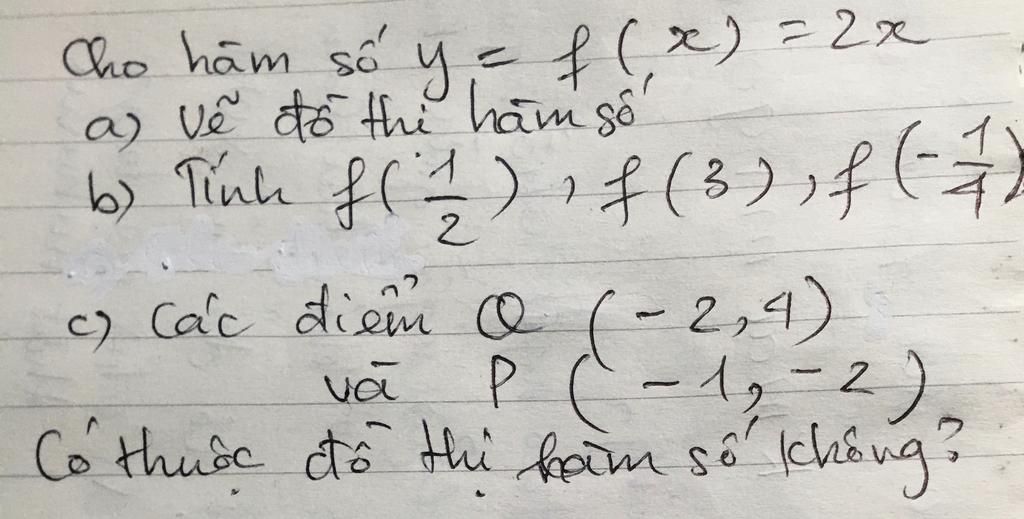 Cho hàm số y = f(x) = 2x
a) Vẽ đồ thi hàm số
b) Tính f(1/2), f(3), f(-1/4)
c) Các điểm Q (-2,4)
và P (-1,-2)
Có thuộc đồ thị hàm số không?